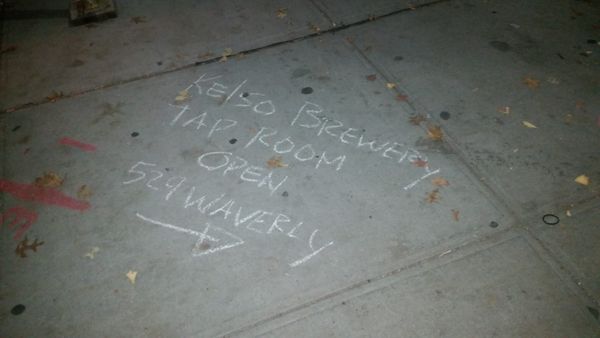 KELSO BREWERY
TAP ROOM
OPEN
529 WAVERLY